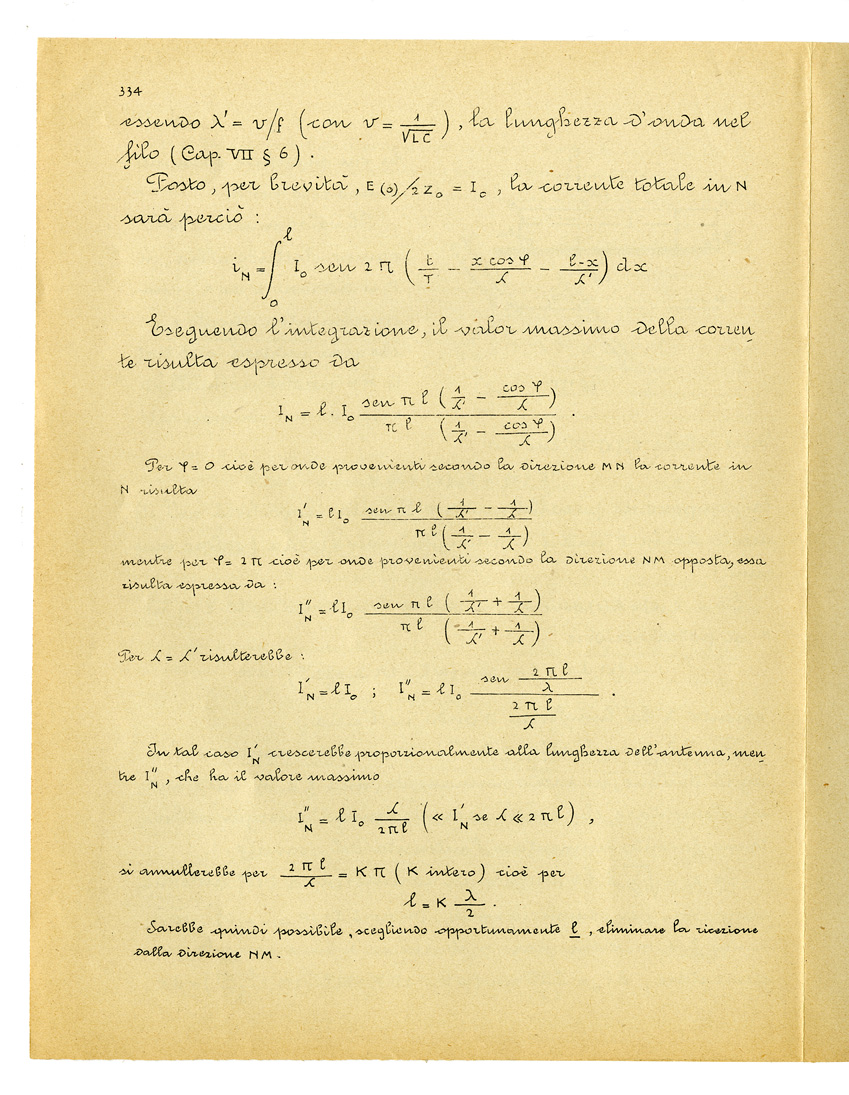 334
essendo λ' = v/f (con v = 1/√LC), la lunghezza d'onda nel
filo (Cap. VII § 6).
Posto, per brevità, E(o)/2Z₀ = I₀, la corrente totale in N
sarà perciò:
i_N = ∫₀^ℓ I₀ sen 2π (t/T - x cos φ/λ - ℓ-x/λ') dx
Eseguendo l'integrazione, il valor massimo della corren
te risulta espresso da
I_N = ℓ. I₀ sen π ℓ (1/λ' - cos φ/λ) / π ℓ (1/λ' - cos φ/λ).
Per φ = 0 cioè per onde provenienti secondo la direzione MN la corrente in
N risulta
I'_N = ℓ I₀ sen π ℓ (1/λ' - 1/λ) / π ℓ (1/λ' - 1/λ)
mentre per φ = 2π cioè per onde provenienti secondo la direzione NM opposta, essa
risulta espressa da:
I''_N = ℓ I₀ sen π ℓ (1/λ' + 1/λ) / π ℓ (1/λ' + 1/λ)
Per λ = λ' risulterebbe:
I'_N = ℓ I₀ ; I''_N = ℓ I₀ sen 2πℓ/λ / 2πℓ/λ.
In tal caso I'_N crescerebbe proporzionalmente alla lunghezza dell'antenna, men
tre I''_N, che ha il valore massimo
I''_N = ℓ I₀ λ/2πℓ (≪ I'_N se λ ≪ 2πℓ),
si annullerebbe per 2πℓ/λ = Kπ (K intero) cioè per
ℓ = K λ/2.
Sarebbe quindi possibile, scegliendo opportunamente ℓ, eliminare la ricezione
dalla direzione NM.